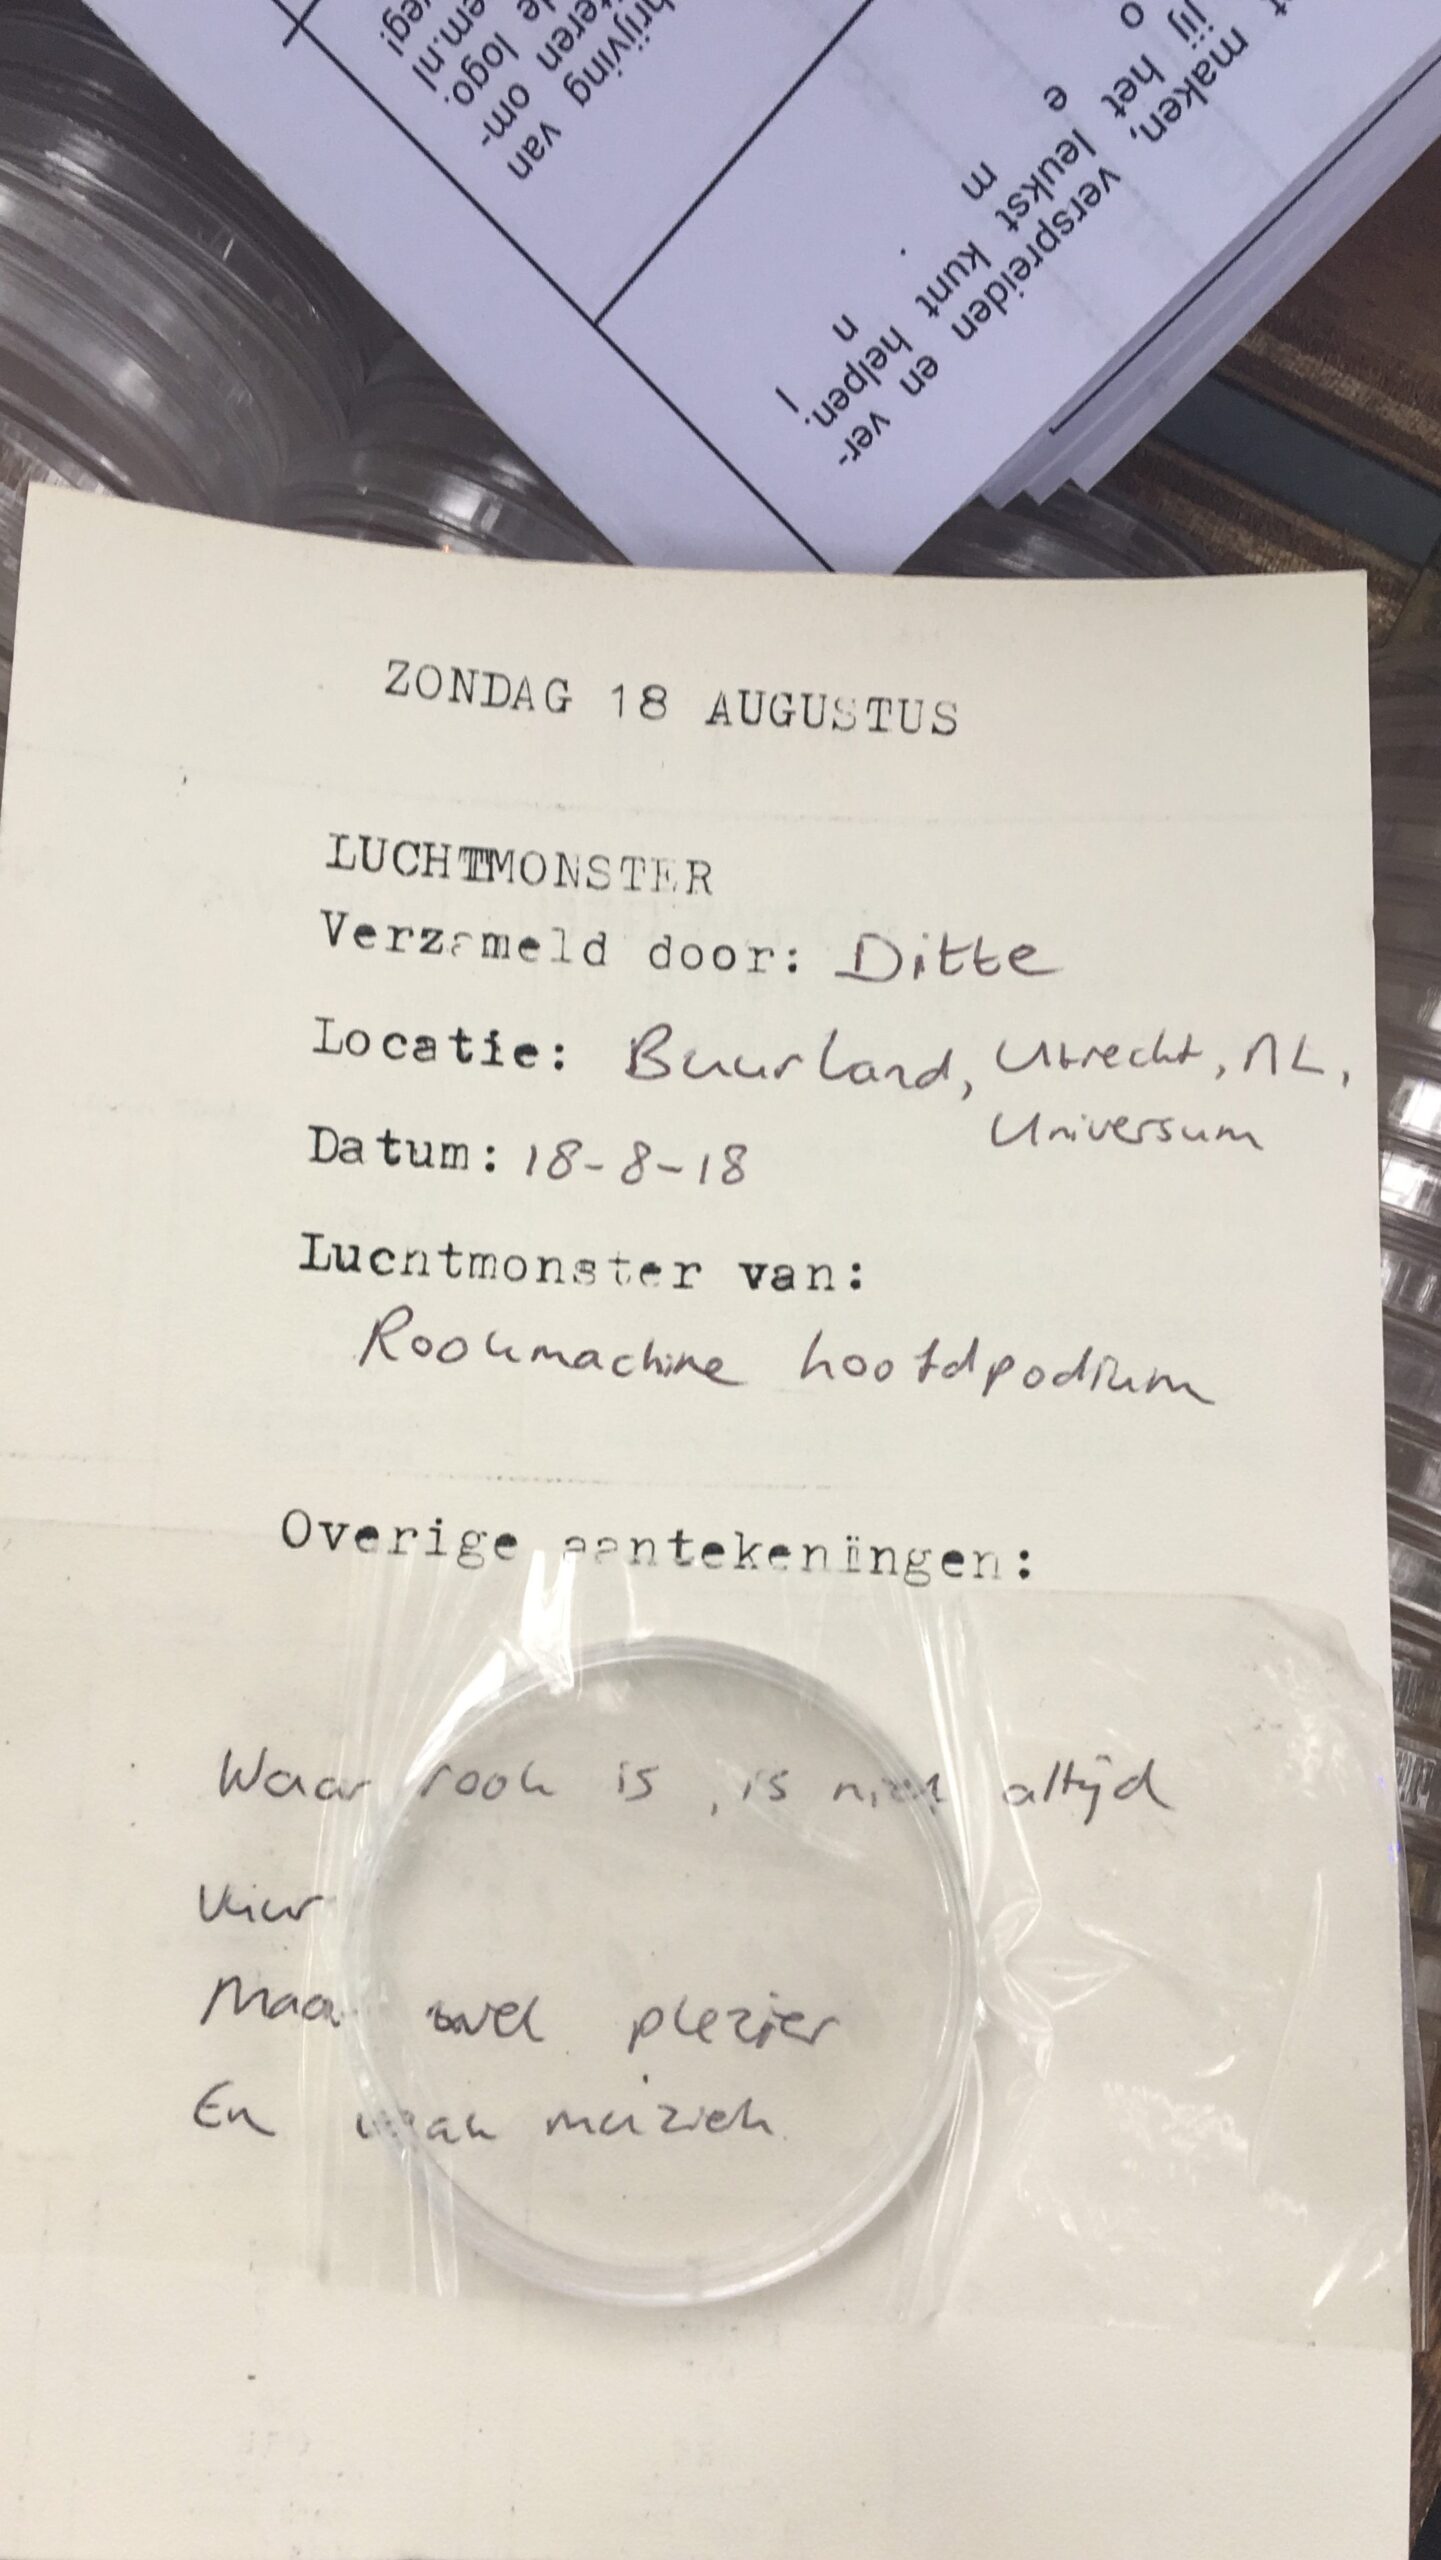 hrijving van
teren om-
de logo.
em.nl
weg!
maken, verspreiden en ver-
jij het leukst kunt helpen.
o e m n I
ZONDAG 18 AUGUSTUS
LUCHTMONSTER
Verzameld door: Ditte
Locatie: Buurland, Utrecht, NL,
Universum
Datum: 18-8-18
Luchtmonster van:
Rookmachine hoofdpodium
Overige aantekeningen:
Waar rook is, is niet altijd
vuur
Maar wel plezier
En vaak muziek